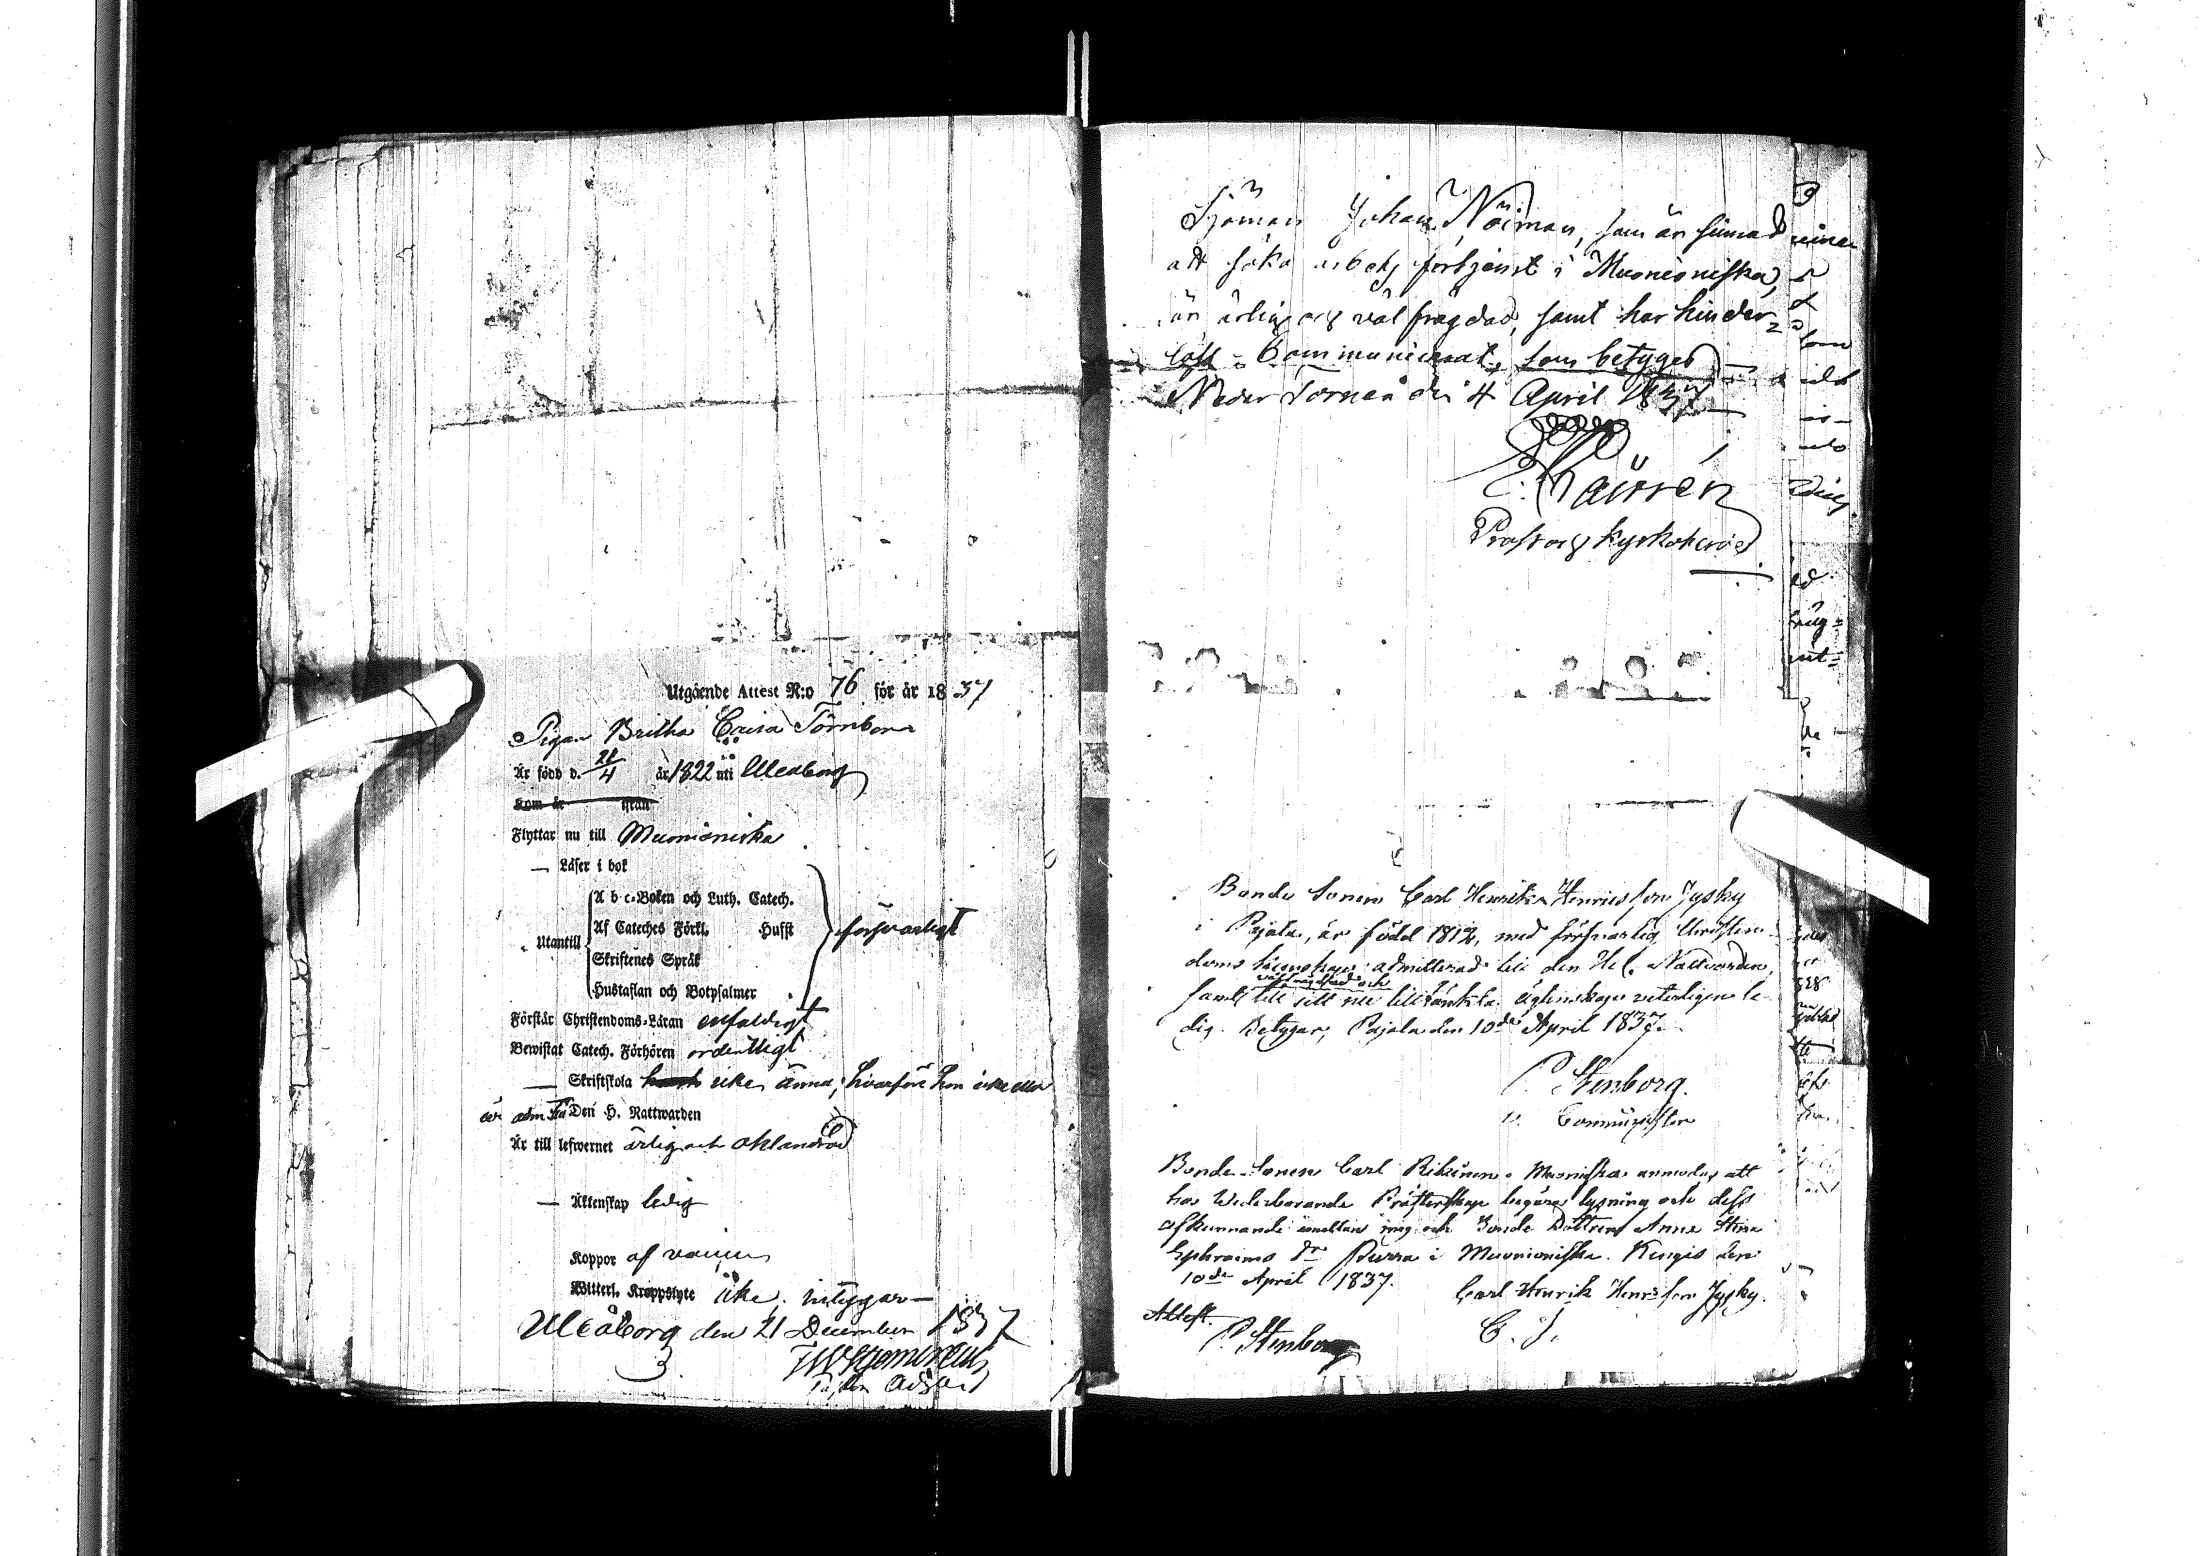 Utgående Attest N:o 76 för år 1837
Pigan Britha Caisa Törnbom
Är född d. 21/4 år 1822 uti Uleåborg
Kom år ifrån
Flyttar nu till Muonioniska
— Läser i bok
A b c-Boken och Luth. Catech.
Af Cateches Förkl. Hufst
Utantill
försvarligt
Skriftenes Språk
Hustaflan och Botpsalmer
Förstår Christendoms-Läran enfaldigt
Bewistat Catech. Förhören ordentligt
— Skriftskola icke ännu, hvarföre hon icke eller
är adm. till Den H. Nattwarden
Är till lefwernet ärlig och oklandrad
— Äktenskap ledig
Koppor af vaccin
Witterl. Kroppslyte icke, intygar —
Uleåborg den 21 December 1837
Sjöman Johan Nöiman, som är sinnad
att söka arbets förtjenst i Muonioniska,
är ärlig och väl frägdad, samt har hinder-
löst Communicerat, som betyges
Neder Torneå den 4 April 1837
Prost och Kyrkoherde
Bonde Sonen Carl Henrik Henricsson Jysky
i Pajala, är född 1812, med försvarlig Christen-
doms kunskap admitterad till den Hel. Nattvarden,
välfrägdad och
samt till sitt nu tilltänkta ägtenskap veterligen le-
dig. Betygar, Pajala den 10de April 1837.
P. Stenborg.
v. Comminister
Bonde Sonen Carl Rikinen i Muoniska anmodas att
hos Wederbörande Prästerskap begära lysning och dess
afkunnande emellan mig och Bonde Dottren Anna Stina
Ephraims dr Purra i Muonioniska. Kengis den
10de April 1837.
Carl Henrik Henrsson Jysky.
Attest.
P. Stenborg
C. J.